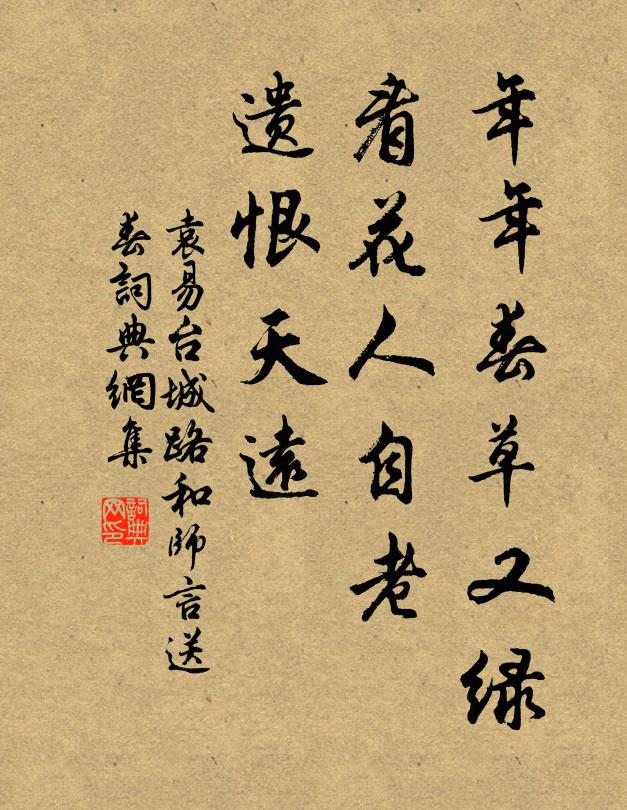 年年春草又綠
看花人自老
遺恨天遠
袁易台城路和師言送
春詞典網集
詞典網印